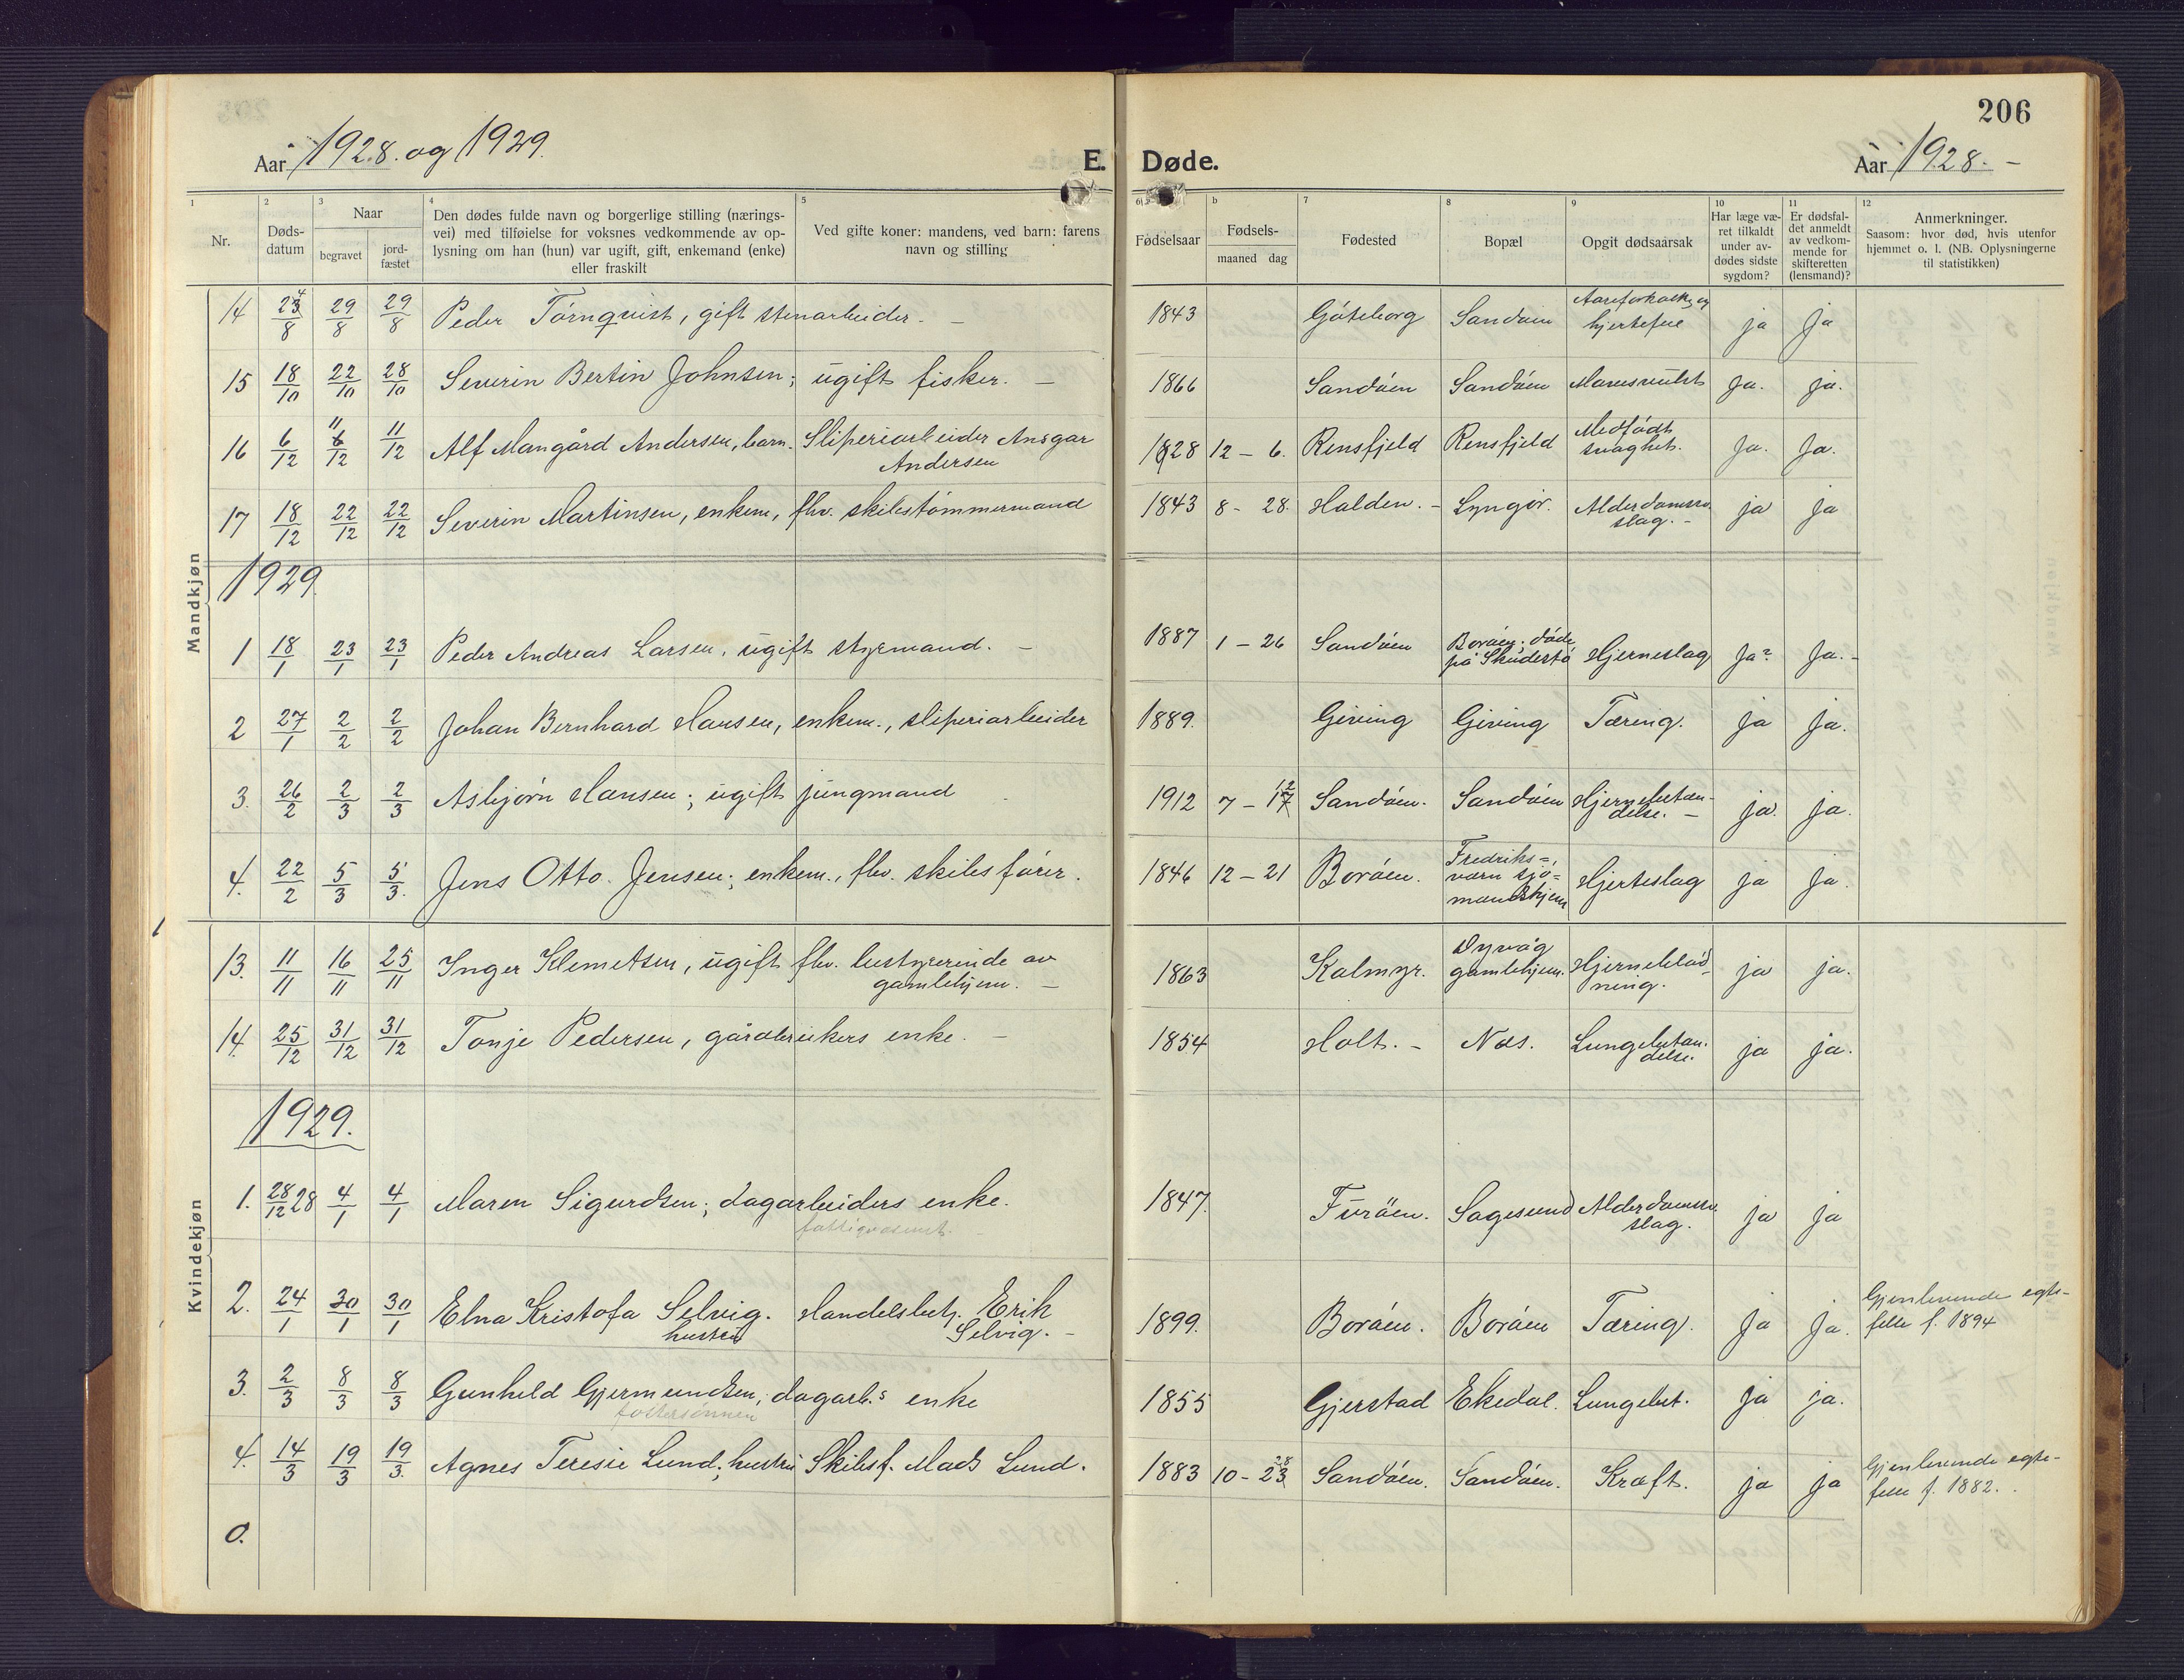 206
Aar 1928. og 1929.
E. Døde.
Aar 1928. –
1 Nr.
2 Døds-
datum
3 Naar
begravet
jord-
fæstet
4 Den dødes fulde navn og borgerlige stilling (nærings-
vei) med tilføielse for voksnes vedkommende av op-
lysning om han (hun) var ugift, gift, enkemand (enke)
eller fraskilt
5 Ved gifte koner: mandens, ved barn: farens
navn og stilling
6 Fødselsaar
b Fødsels-
maaned dag
7 Fødested
8 Bopæl
9 Opgit dødsaarsak
10 Har læge væ-
ret tilkaldt
under av-
dødes sidste
sygdom?
11 Er dødsfal-
det anmeldt
av vedkom-
mende for
skifteretten
(lensmand)?
12 Anmerkninger.
Saasom: hvor død, hvis utenfor
hjemmet o. l. (NB. Oplysningerne
til statistikken)
Mandkjøn
14 24/8 29/8 29/8 Peder Törnquist, gift stenarbeider. – 1843 Göteborg Sandøen Aareforkalkn. og hjertefeil ja ja
15 18/10 22/10 28/10 Severin Bertin Johnsen; ugift fisker. – 1866 Sandøen Sandøen ja. ja.
16 6/12 11/12 11/12 Alf Mangård Andersen, barn. Sliperiarbeider Ansgar
Andersen 1928 12 – 6. Rensfjeld Rensfjeld Medfødt
svaghet. ja. ja.
17 18/12 22/12 22/12 Severin Martinsen, enkem, fhv. skibstømmermand 1843 8 - 28. Halden. – Lyngør. Alderdomssv.
slag. – ja ja
1929
1 18/1 23/1 23/1 Peder Andreas Larsen, ugift styrmand. – 1887 1 – 26 Sandøen Borøen; døde
på Skudestø Hjerneslag ja? ja. –
2 27/1 2/2 2/2 Johan Bernhard Hansen, enkem., sliperiarbeider 1889. Giving Giving Tæring. ja ja.
3. 26/2 2/3 2/3 Asbjørn Hansen; ugift jungmand 1912 7 – 12 Sandøen. Sandøen Hjernebetæn-
delse. – ja. ja.
4. 22/2 5/3 5/3. Jens Otto Jensen; enkem., fhv. skibsfører. 1846 12 – 21 Borøen. Fredriks=
værn sjø=
mandshjem Hjerteslag ja ja.
Kvindekjøn
13. 11/11 16/11 25/11 Inger Klemetsen, ugift fhv. bestyrerinde av
gamlehjem. – 1863 Kalmyr. Dypvåg
gamlehjem. Hjerneblød-
ning. ja ja.
14. 25/12 31/12 31/12 Tonje Pedersen, gårdbrukers enke. – 1854 Holt. – Næs. Lungebetæn-
delse. ja ja.
1929.
1. 28/12 28 4/1 4/1 Maren Sigurdsen; dagarbeiders enke.
fattigvæsenet. 1847. Furøen. Sagesund Alderdomssv.
slag. ja ja
2. 24/1 30/1 30/1 Elna Kristofa Selvig.
hustru Handelsbetj. Erik
Selvig. – 1899. Borøen. Borøen Tæring. ja ja. Gjenlevende egte-
felle f. 1894
3. 2/3 8/3 8/3 Gunhild Gjermundsen, dagarb.s enke
fostersønnen 1855 Gjerstad Ekedal. Lungebet. ja ja.
4. 14/3 19/3 19/3. Agnes Teresie Lund; hustru Skibsf. Mads Lund. 1883 10 – 28 Sandøen. Sandøen. Kræft. ja ja Gjenlevende egte-
felle f. 1882.
0.